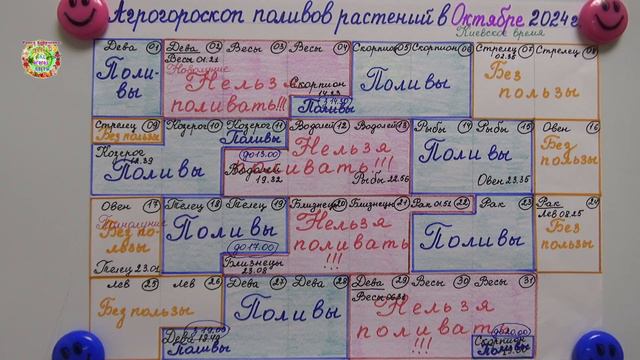 Агрогороскоп поливов растений в Октябре 2024 г.
Киевское время
Дева 01
Поли-
вы
Дева 02 Весы 03 Весы 04
Весы 01.21
Новолуние
Нельзя
поливать!!!
Скорпион
Поливы
Скорпион 05 Скорпион 06
Поливы
Стрелец 07 Стрелец 08
Без
пользы
Стрелец 09
Без пользы
Козерог
Козерог 10 Козерог 11
Поливы
Поливы
до 13.00
Водолей
19.32
Водолей 12 Водолей 13
Нельзя
поливать!!!
Рыбы 22.56
Рыбы 14 Рыбы 15
Поливы
Овен 23.35
Овен 16
Без
пользы
Овен 17
Полнолуние
Без по-
льзы
Телец 23.01
Телец 18 Телец 19
Поливы
до 17.00
Близнецы
23.08
Близнецы 20 Близнецы 21
Нельзя
поливать
!!!
Рак 01.51 22 Рак 23
Поливы
Рак 24
Лев 08.25
Без
пользы
Лев 25 Лев 26
Без пользы
Дева
Поливы
Дева 27 Дева 28
Поливы
Дева 29 Весы 30 Весы 31
Весы
Нельзя
поливать
!!!
Скорпион
Поливы